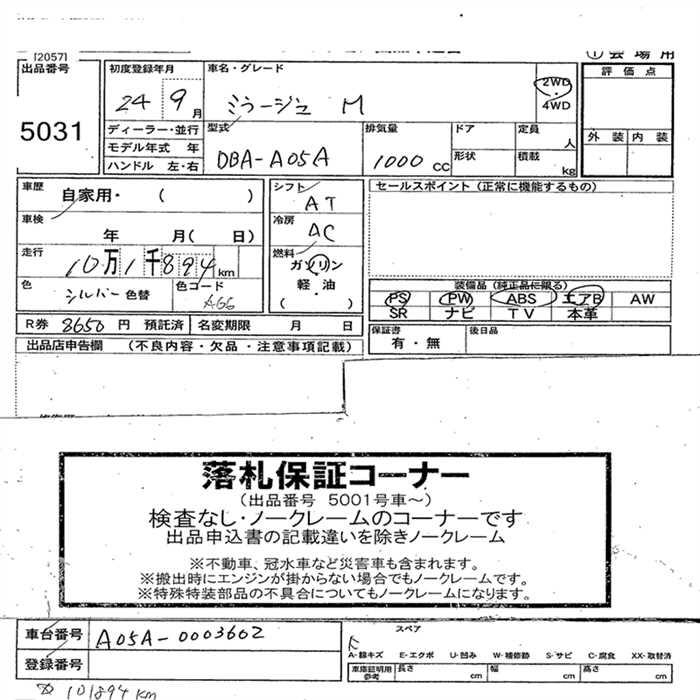 [2057]
①会場用
出品番号
5031
初度登録年月
24 9月
車名・グレード
ミラージュ M
2WD
・
4WD
評価点
外装 内装
ディーラー・並行
モデル年式 年
ハンドル 左・右
型式
DBA-A05A
排気量
1000 cc
ドア
形状
定員
人
積載
kg
車歴
自家用・ ( )
車検
年 月( 日)
走行
10万1千894km
色
シルバー 色替
色コード
A66
シフト
AT
冷房
AC
燃料
ガソリン
軽・油
( )
セールスポイント(正常に機能するもの)
装備品(純正品に限る)
PS PW ABS エアB AW
SR ナビ TV 本革
R券 8650円 預託済 名変期限 月 日
保証書
有・無
後日品
出品店申告欄 (不良内容・欠品・注意事項記載)
落札保証コーナー
(出品番号 5001号車~)
検査なし・ノークレームのコーナーです
出品申込書の記載違いを除きノークレーム
※不動車、冠水車など災害車も含まれます。
※搬出時にエンジンが掛からない場合でもノークレームです。
※特殊特装部品の不具合についてもノークレームになります。
車台番号 A05A-0003602
登録番号
スペア
A-線キズ E-エクボ U-凹み W-補修跡 S-サビ C-腐食 XX-取替済
車庫証明用
参考
長さ cm 幅 cm 高さ cm
101894km